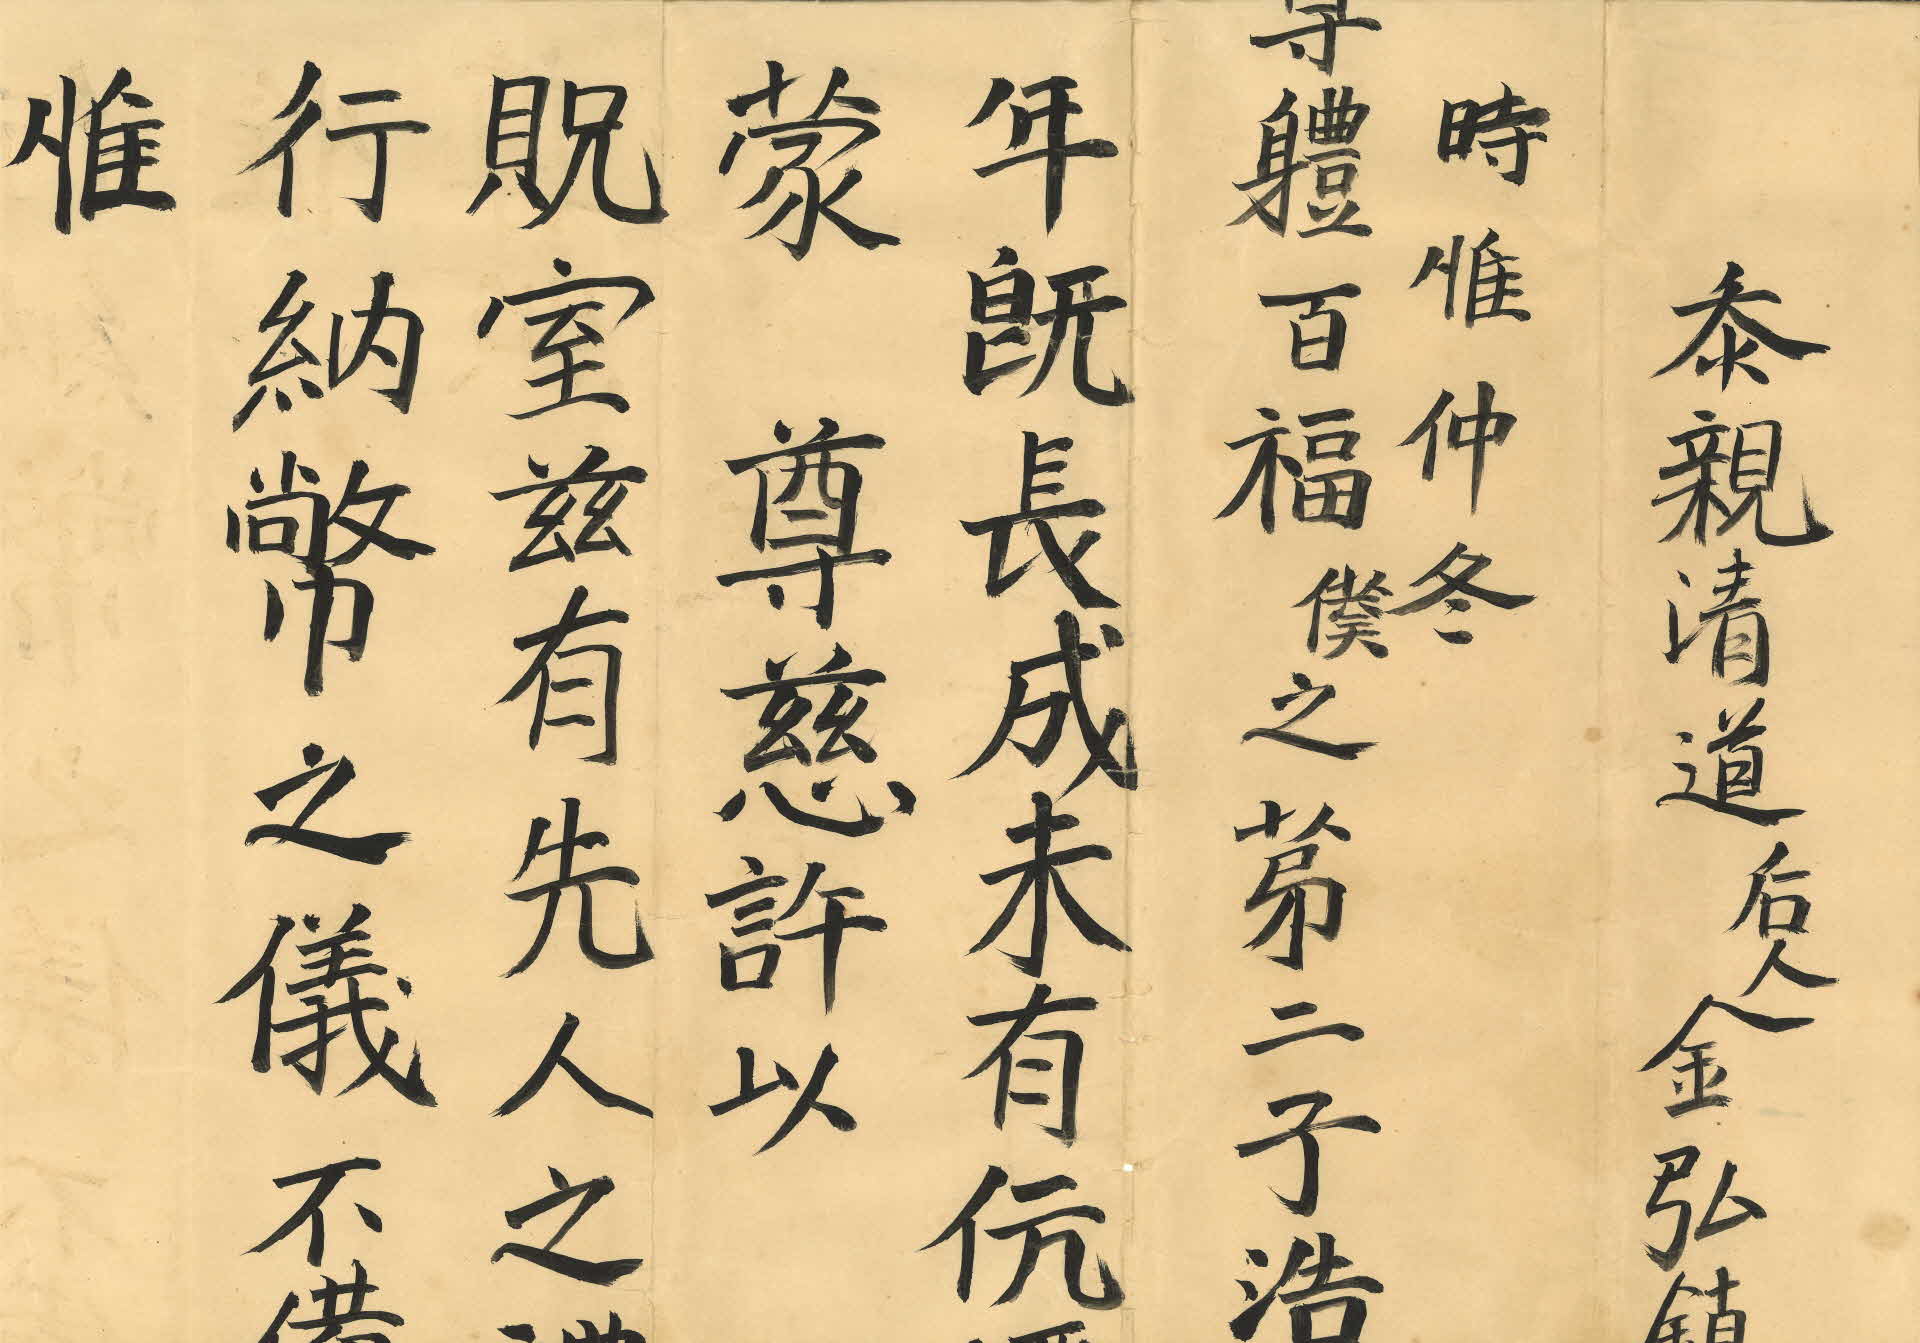 忝親清道后人金弘鎮
時惟仲冬
尊軆百福僕之苐二子浩
年旣長成未有伉
蒙 尊慈許以
貺室兹有先人之禮
行納幣之儀不備
惟